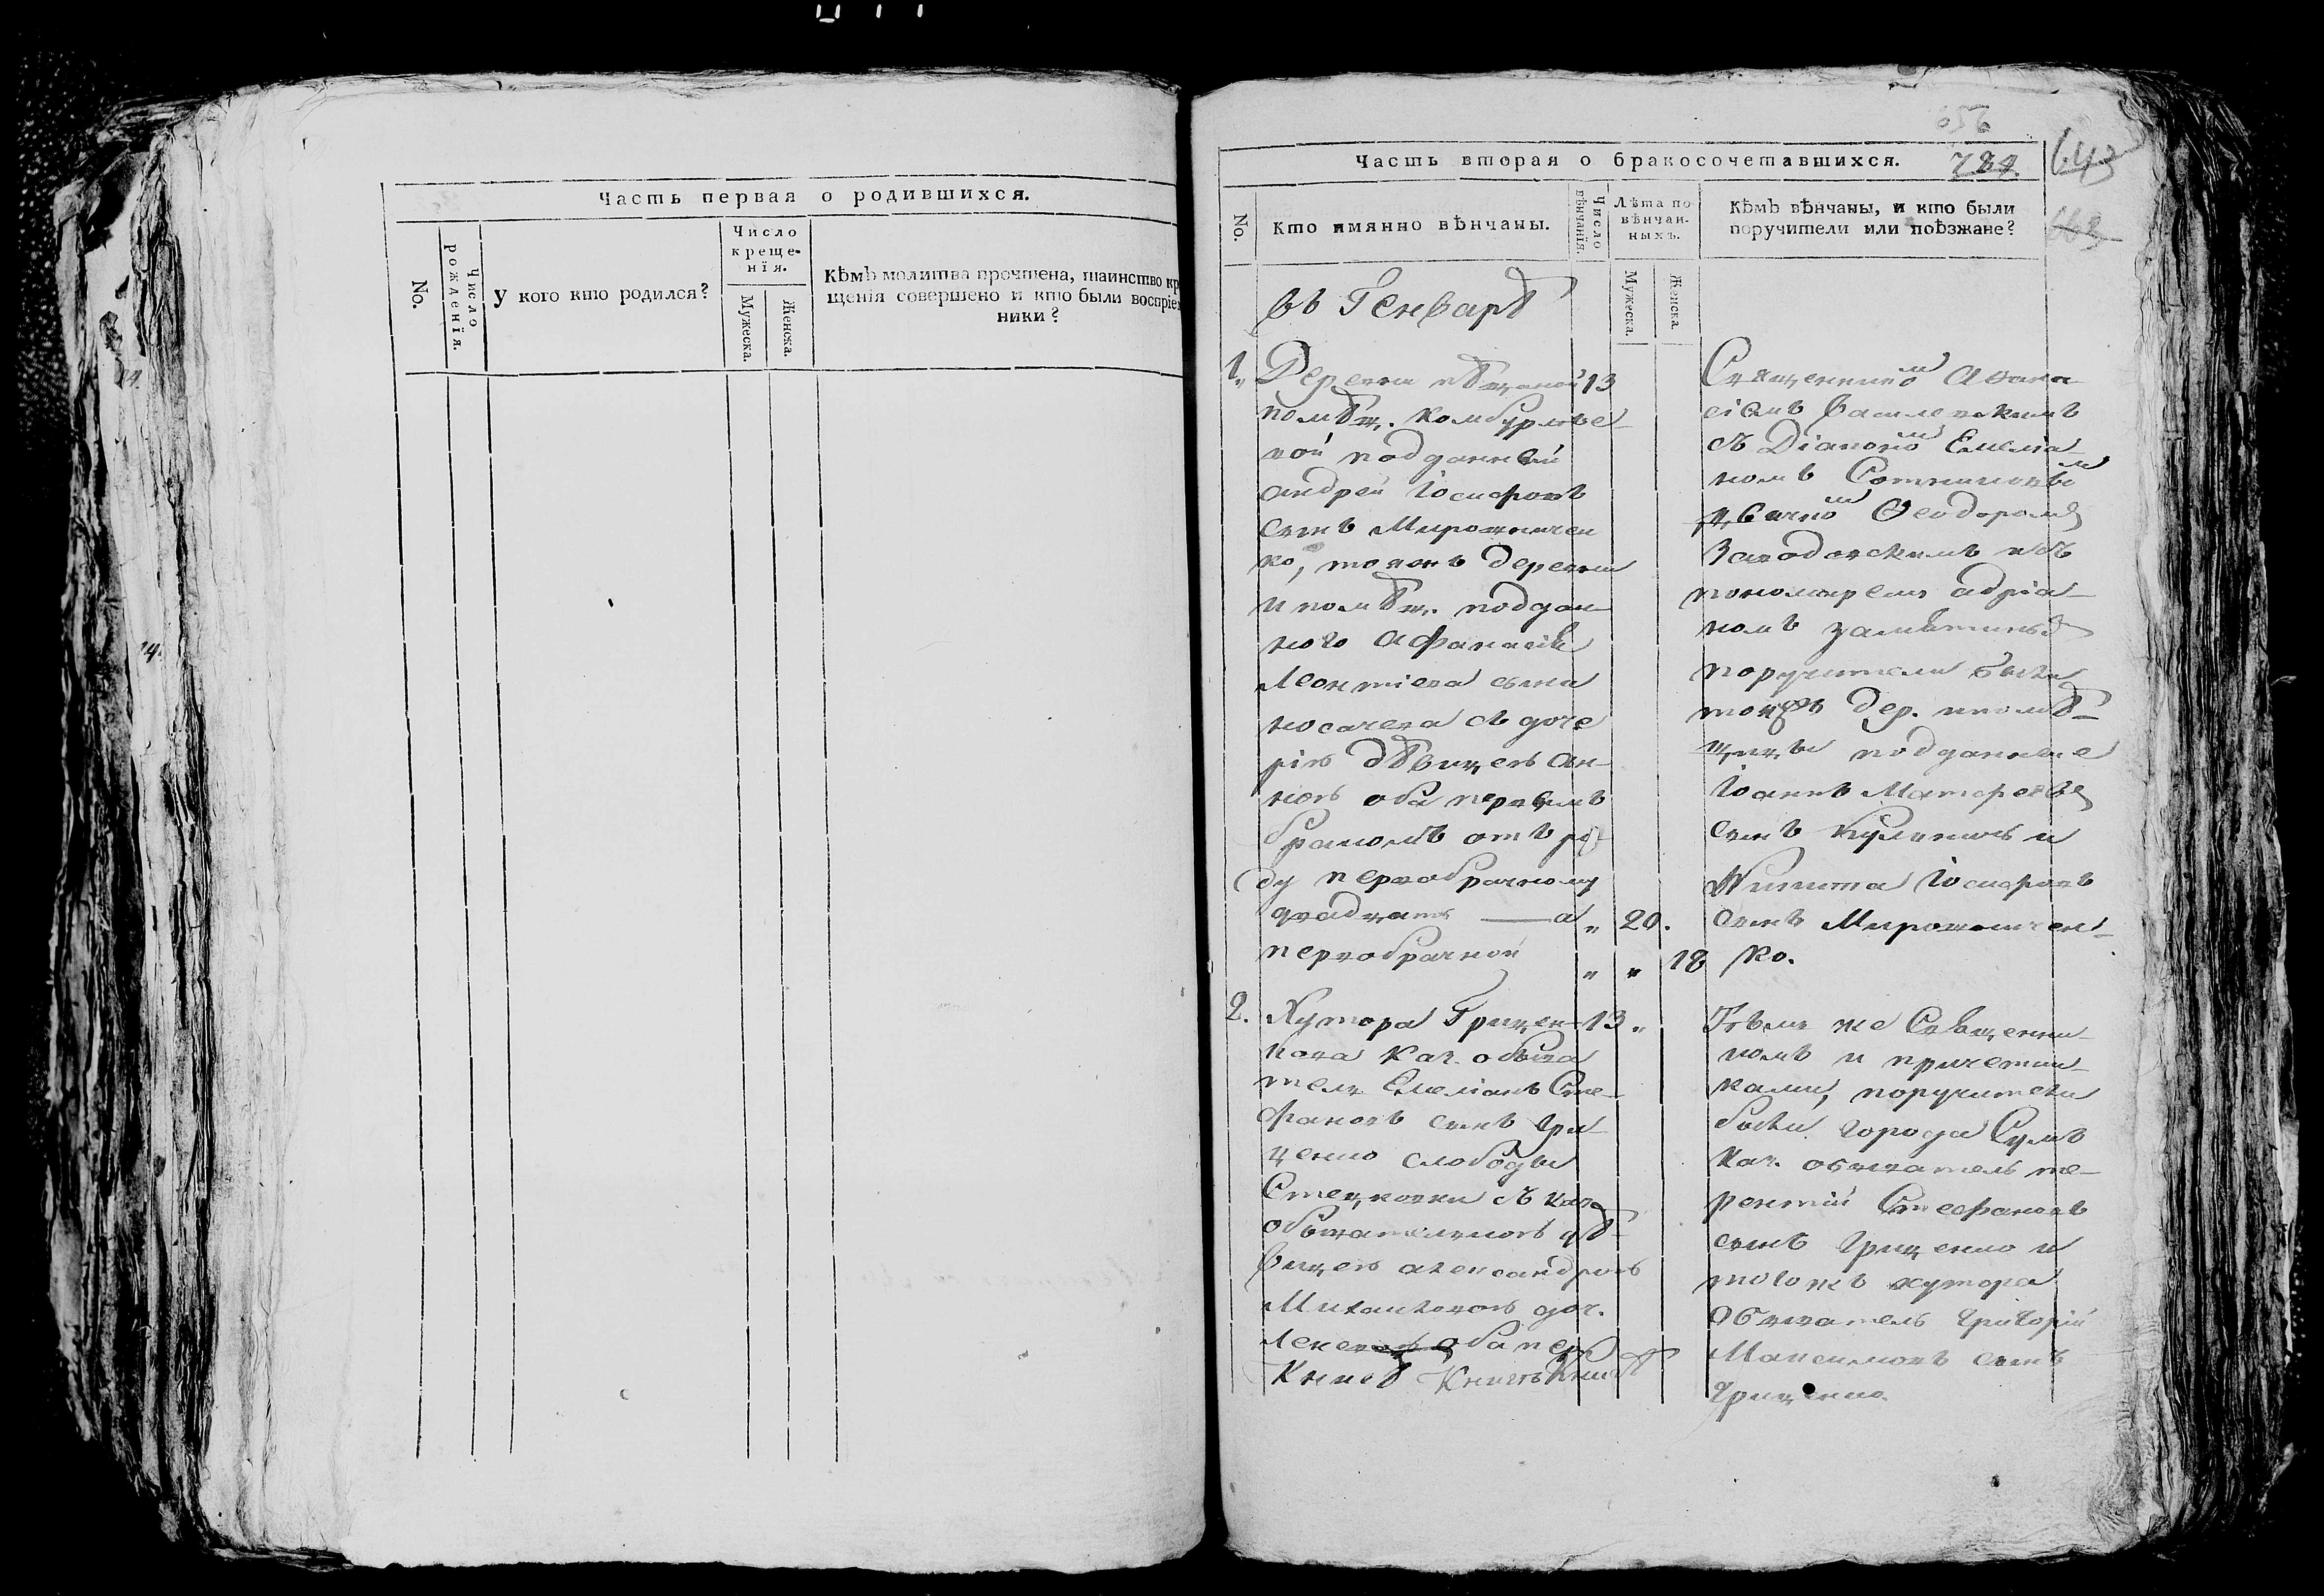 Часть первая о родившихся.
No.
Число рожденїя.
У кого кто родился?
Число
креще-
нїя.
Мужеска.
Женска.
Кѣмъ молитва прочтена, таинство кр
щенїя совершено и кто были воспрїе
ники?
656
Часть вторая о бракосочетавшихся.
784.
643
663
No.
Кто имянно вѣнчаны.
Число вѣнчанїя.
Лѣта по-
вѣнчан-
ныхъ.
Мужеска.
Женска.
Кѣмъ вѣнчаны, и кто были
поручители или поѣзжане?
въ Генварѣ
1, Деревни 13
помѣщ. Комбурлѣе
вой подданный
Андрей Іосифовъ
сынъ Мирошничен
ко, тоежъ деревни
и помѣщ. поддан-
ного Афанасія
Леонтіева сына
Косачева съ доче
рію дѣвицею Ан-
ною оба первымъ
бракомъ отъ ро-
ду первобрачному
двадцать — а „ 20.
первобрачной „ „ 18
Священнико Афана
сіемъ Василевскимъ
съ Діаконо Емелїа-
номъ Сотниковы
дьячко Ѳеодоромъ
Заводовскимъ и съ
пономаремъ Адріа-
номъ
поручители были
тоежъ дер. и помѣ-
щицы подданные
Іоаннъ Матфеевъ
сынъ Куликовъ и
Никита Іосифовъ
сынъ Мирошничен-
ко.
2. Хутора Грицен- 13 „
кова каз. обыва
тель Емеліанъ Сте-
фановъ сынъ Гри-
ценко слободы
Стецковки съ каз.
обывателькою дѣ-
вицею Александрою
Михайловою доч.
оба пер
Книгѣ Книгъ Книгѣ
Тѣмъ же Священни-
комъ и причетни-
ками, поручители
были города Сумъ
каз. обыватель Те-
рентій Стефановъ
сынъ Гриценко и
тогожъ хутора
обыватель Григорій
Максимовъ сынъ
Гриценко.